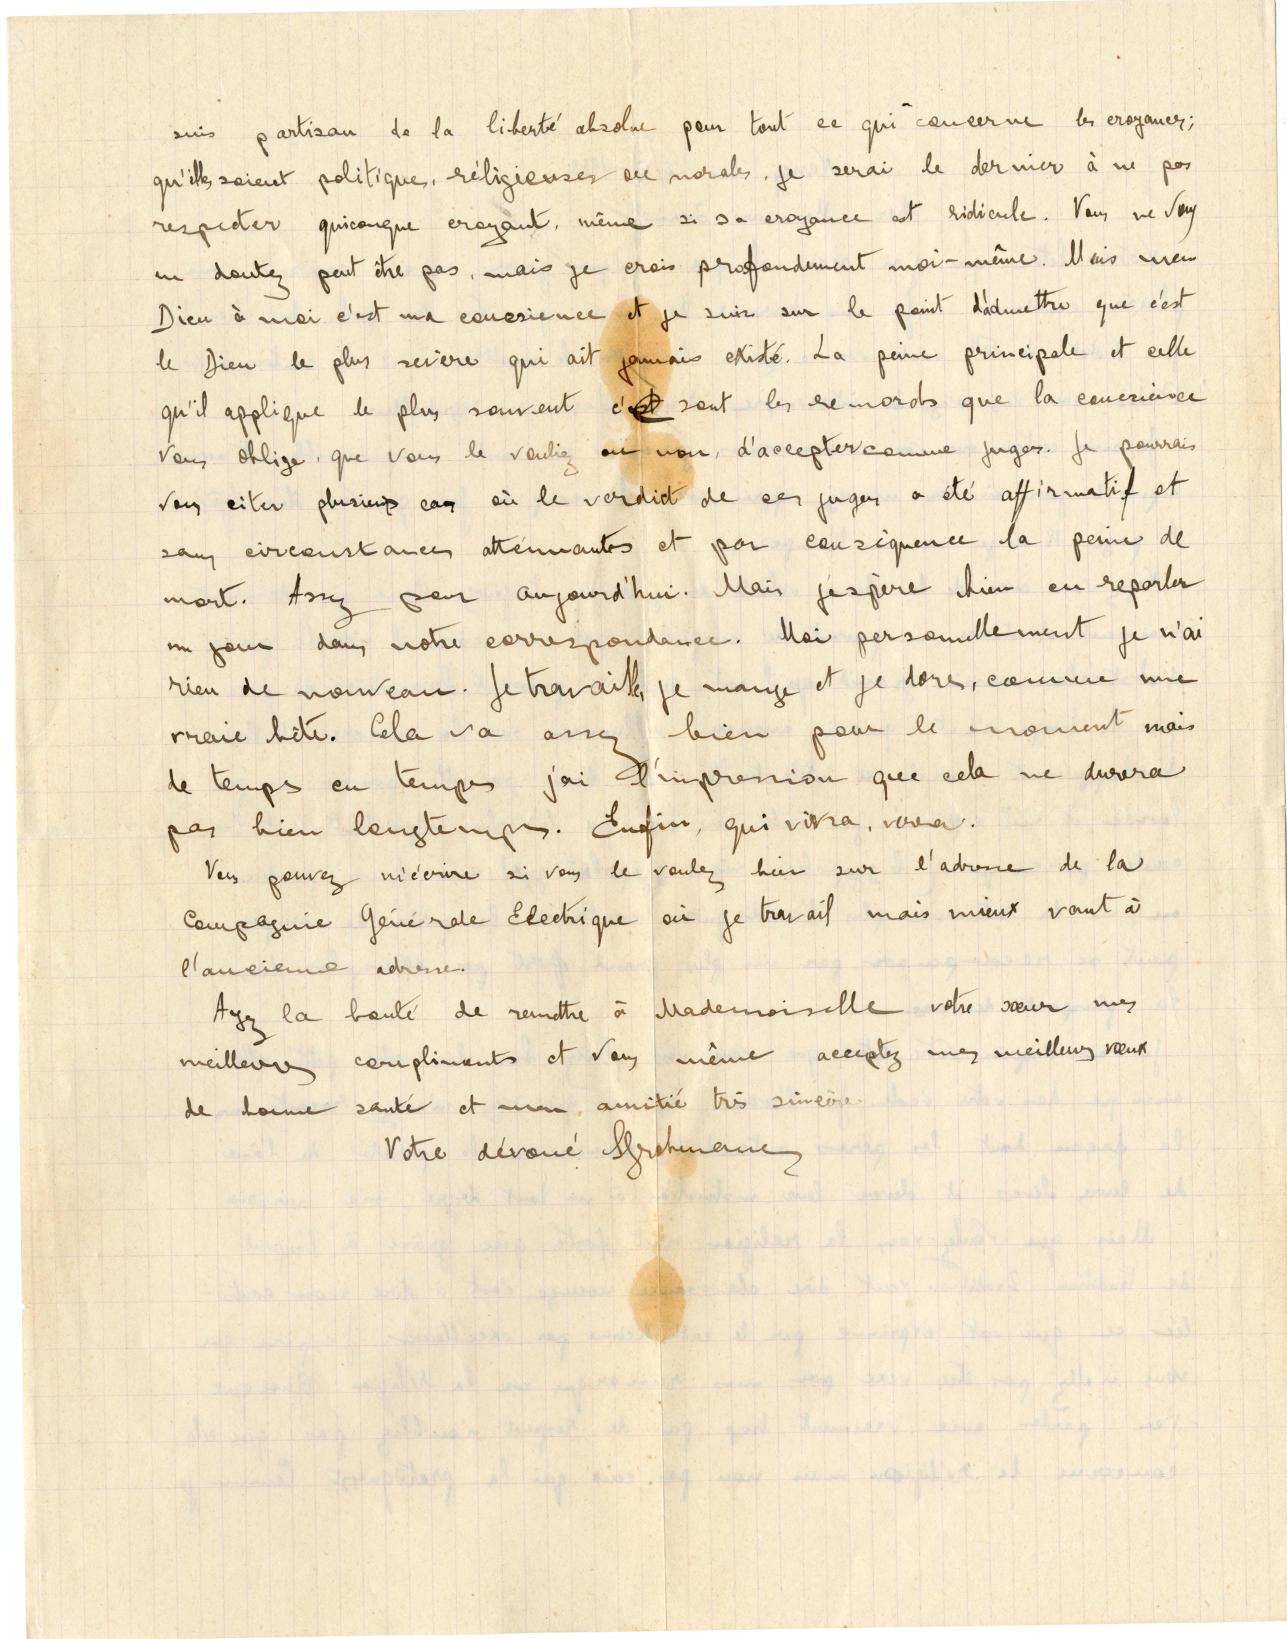 suis partisan de la liberté absolue pour tout ce qui concerne les croyances;
qu'elles soient politiques, réligieuses ou morales, je serai le dernier à ne pas
respecter quiconque croyant, même si sa croyance est ridicule. Vous ne vous
en doutez peut être pas, mais je crois profondement moi-même. Mais mon
Dieu à moi c'est ma conscience et je suis sur le point d'admettre que c'est
le Dieu le plus sevère qui ait jamais existé. La peine principale et celle
qu'il applique le plus souvent c'est sont les remords que la conscience
vous oblige, que vous le vouliez ou non, d'accepter comme juges. Je pourrais
vous citer plusieurs cas où le verdict de ces juges a été affirmatif et
sans circonstances atténuantes et par conséquence la peine de
mort. Assez pour aujourd'hui. Mais j'éspère bien en reparler
un jour dans notre correspondance. Moi personnellement je n'ai
rien de nouveau. Je travaille, je mange et je dors, comme une
vraie bête. Cela va assez bien pour le moment mais
de temps en temps j'ai l'impression que cela ne durera
pas bien longtemps. Enfin, qui vivra, verra.
Vous pouvez m'écrire si vous le voulez bien sur l'adresse de la
Compagnie Générale Electrique où je travail mais mieux vaut à
l'ancienne adresse.
Ayez la bonté de remettre à Mademoiselle votre sœur mes
meilleurs compliments et vous même acceptez mes meilleurs vœux
de bonne santé et mon amitié très sincère.
Votre dévoué